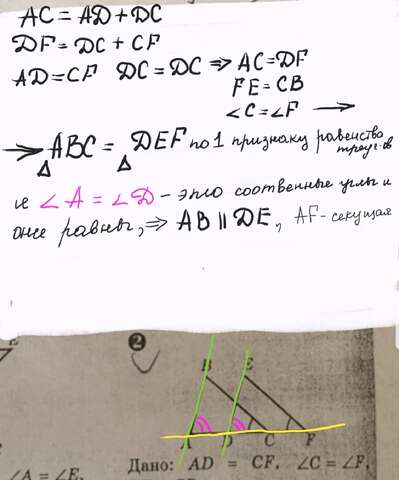 AC = AD + DC
DF = DC + CF
AD = CF DC = DC ⇒ AC = DF
FE = CB
∠C = ∠F →
→ △ABC = △DEF по 1 признаку равенства треуг-ов
и ∠A = ∠D - это соотвенные углы и
они равны, ⇒ AB || DE, AF - секущая
2
B E
A D C F
∠A = ∠E,
Дано: AD = CF, ∠C = ∠F,